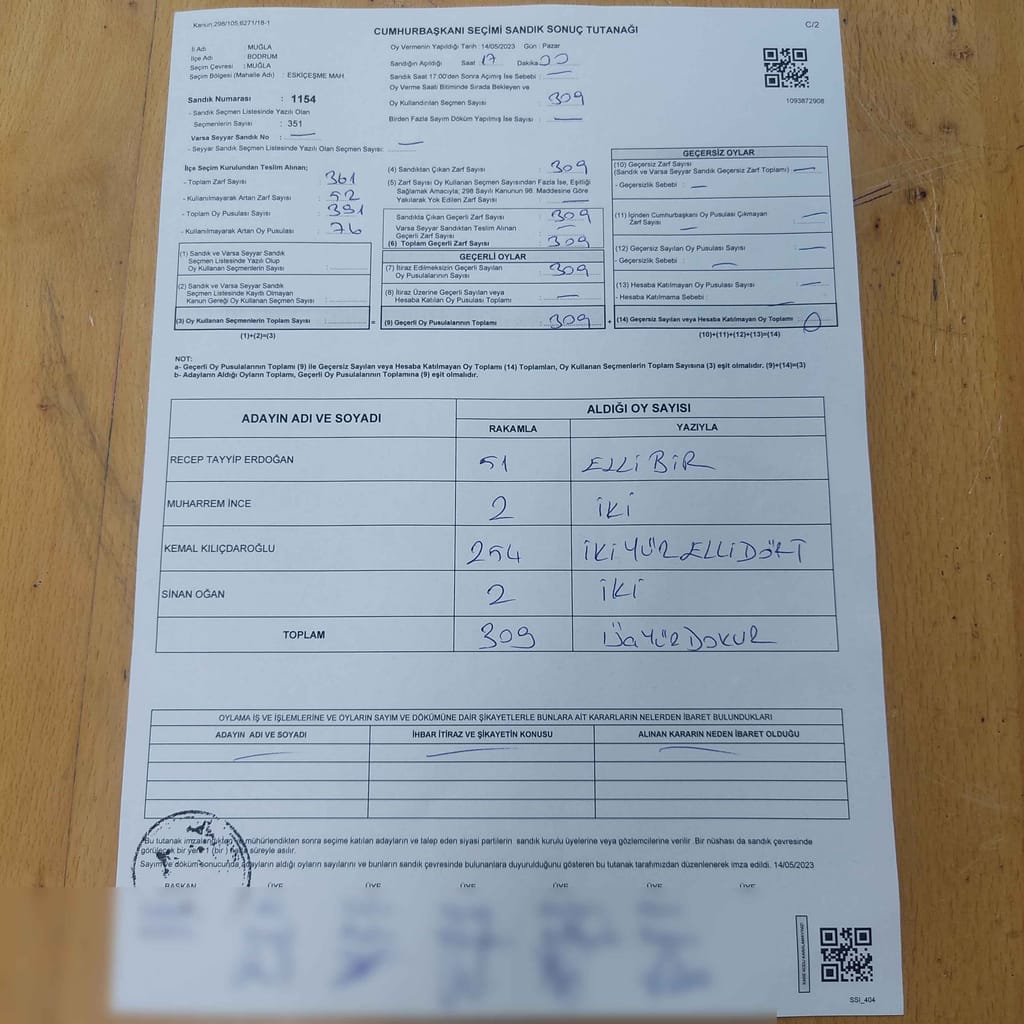 Kanun:298/105,6271/18-1
C/2
CUMHURBAŞKANI SEÇİMİ SANDIK SONUÇ TUTANAĞI
İl Adı : MUĞLA
İlçe Adı : BODRUM
Seçim Çevresi : MUĞLA
Seçim Bölgesi (Mahalle Adı) : ESKİÇEŞME MAH
Sandık Numarası : 1154
- Sandık Seçmen Listesinde Yazılı Olan
Seçmenlerin Sayısı : 351
Varsa Seyyar Sandık No :
- Seyyar Sandık Seçmen Listesinde Yazılı Olan Seçmen Sayısı:
Oy Vermenin Yapıldığı Tarih :14/05/2023 Gün : Pazar
Sandığın Açıldığı Saat : 17 Dakika: 00
Sandık Saat 17:00'den Sonra Açımış İse Sebebi :
Oy Verme Saati Bitiminde Sırada Bekleyen ve
Oy Kullandırılan Seçmen Sayısı : 309
Birden Fazla Sayım Döküm Yapılmış İse Sayısı :
1093872908
İlçe Seçim Kurulundan Teslim Alınan;
- Toplam Zarf Sayısı : 361
- Kullanılmayarak Artan Zarf Sayısı : 52
- Toplam Oy Pusulası Sayısı : 391
- Kullanılmayarak Artan Oy Pusulası : 76
(1) Sandık ve Varsa Seyyar Sandık
Seçmen Listesinde Yazılı Olup
Oy Kullanan Seçmenlerin Sayısı :
(2) Sandık ve Varsa Seyyar Sandık
Seçmen Listesinde Kayıtlı Olmayan
Kanun Gereği Oy Kullanan Seçmen Sayısı :
(3) Oy Kullanan Seçmenlerin Toplam Sayısı : =
(1)+(2)=(3)
(4) Sandıktan Çıkan Zarf Sayısı : 309
(5) Zarf Sayısı Oy Kullanan Seçmen Sayısından Fazla İse, Eşitliği
Sağlamak Amacıyla; 298 Sayılı Kanunun 98. Maddesine Göre
Yakılarak Yok Edilen Zarf Sayısı :
Sandıkta Çıkan Geçerli Zarf Sayısı : 309
Varsa Seyyar Sandıktan Teslim Alınan
Geçerli Zarf Sayısı :
(6) Toplam Geçerli Zarf Sayısı : 309
GEÇERLİ OYLAR
(7) İtiraz Edilmeksizin Geçerli Sayılan
Oy Pusulalarının Sayısı : 309
(8) İtiraz Üzerine Geçerli Sayılan veya
Hesaba Katılan Oy Pusulası Toplamı :
(9) Geçerli Oy Pusulalarının Toplamı : 309 +
GEÇERSİZ OYLAR
(10) Geçersiz Zarf Sayısı
(Sandık ve Varsa Seyyar Sandık Geçersiz Zarf Toplamı) :
- Geçersizlik Sebebi :
(11) İçinden Cumhurbaşkanı Oy Pusulası Çıkmayan
Zarf Sayısı :
(12) Geçersiz Sayılan Oy Pusulası Sayısı :
- Geçersizlik Sebebi :
(13) Hesaba Katılmayan Oy Pusulası Sayısı :
- Hesaba Katılmama Sebebi :
(14) Geçersiz Sayılan veya Hesaba Katılmayan Oy Toplamı : 0
(10)+(11)+(12)+(13)=(14)
NOT:
a- Geçerli Oy Pusulalarının Toplamı (9) ile Geçersiz Sayılan veya Hesaba Katılmayan Oy Toplamı (14) Toplamları, Oy Kullanan Seçmenlerin Toplam Sayısına (3) eşit olmalıdır. (9)+(14)=(3)
b- Adayların Aldığı Oyların Toplamı, Geçerli Oy Pusulalarının Toplamına (9) eşit olmalıdır.
ADAYIN ADI VE SOYADI ALDIĞI OY SAYISI
RAKAMLA YAZIYLA
RECEP TAYYİP ERDOĞAN 51 ELLİ BİR
MUHARREM İNCE 2 İKİ
KEMAL KILIÇDAROĞLU 254 İKİ YÜZ ELLİ DÖRT
SİNAN OĞAN 2 İKİ
TOPLAM 309 ÜÇ YÜZ DOKUZ
OYLAMA İŞ VE İŞLEMLERİNE VE OYLARIN SAYIM VE DÖKÜMÜNE DAİR ŞİKAYETLERLE BUNLARA AİT KARARLARIN NELERDEN İBARET BULUNDUKLARI
ADAYIN ADI VE SOYADI İHBAR İTİRAZ VE ŞİKAYETİN KONUSU ALINAN KARARIN NEDEN İBARET OLDUĞU
Bu tutanak imzalandıktan ve mühürlendikten sonra seçime katılan adayların ve talep eden siyasi partilerin sandık kurulu üyelerine veya gözlemcilerine verilir. Bir nüshası da sandık çevresinde
görülecek bir yere 1 (bir) hafta süreyle asılır.
Sayım ve döküm sonucunda adayların aldığı oyların sayılarını ve bunların sandık çevresinde bulunanlara duyurulduğunu gösteren bu tutanak tarafımızdan düzenlenerek imza edildi. 14/05/2023
BAŞKAN ÜYE ÜYE ÜYE ÜYE ÜYE ÜYE
SSİ_404